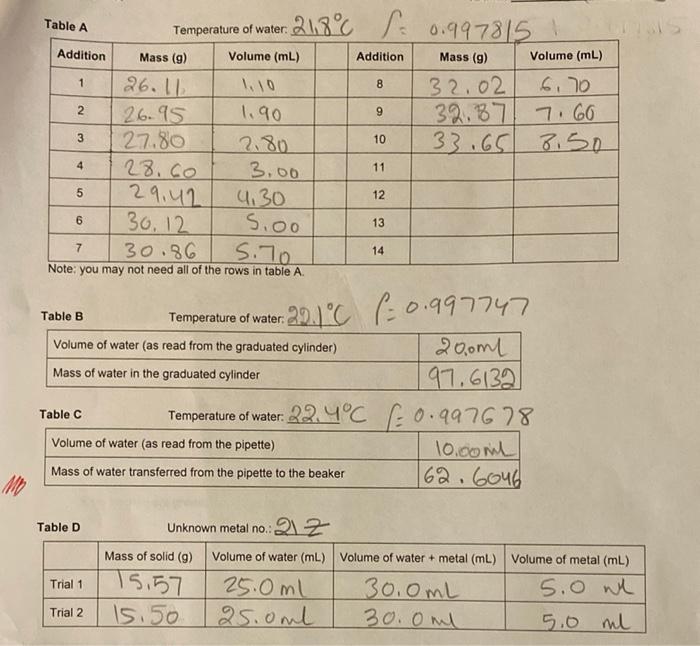 Table A Temperature of water: 21.8°C ρ= 0.997815
Addition Mass (g) Volume (mL) Addition Mass (g) Volume (mL)
1 26.11 1.10 8 32.02 6.70
2 26.95 1.90 9 32.87 7.60
3 27.80 2.80 10 33.65 8.50
4 28.60 3.00 11
5 29.42 4.30 12
6 30.12 5.00 13
7 30.86 5.70 14
Note: you may not need all of the rows in table A.
Table B Temperature of water: 22.1°C ρ= 0.997747
Volume of water (as read from the graduated cylinder) 20.0ml
Mass of water in the graduated cylinder 97.6132
Table C Temperature of water: 22.4°C ρ= 0.997678
Volume of water (as read from the pipette) 10.00ml
Mass of water transferred from the pipette to the beaker 62.6046
Table D Unknown metal no.: 21 Z
Mass of solid (g) Volume of water (mL) Volume of water + metal (mL) Volume of metal (mL)
Trial 1 15.57 25.0ml 30.0mL 5.0 ml
Trial 2 15.50 25.0ml 30.0ml 5.0 ml